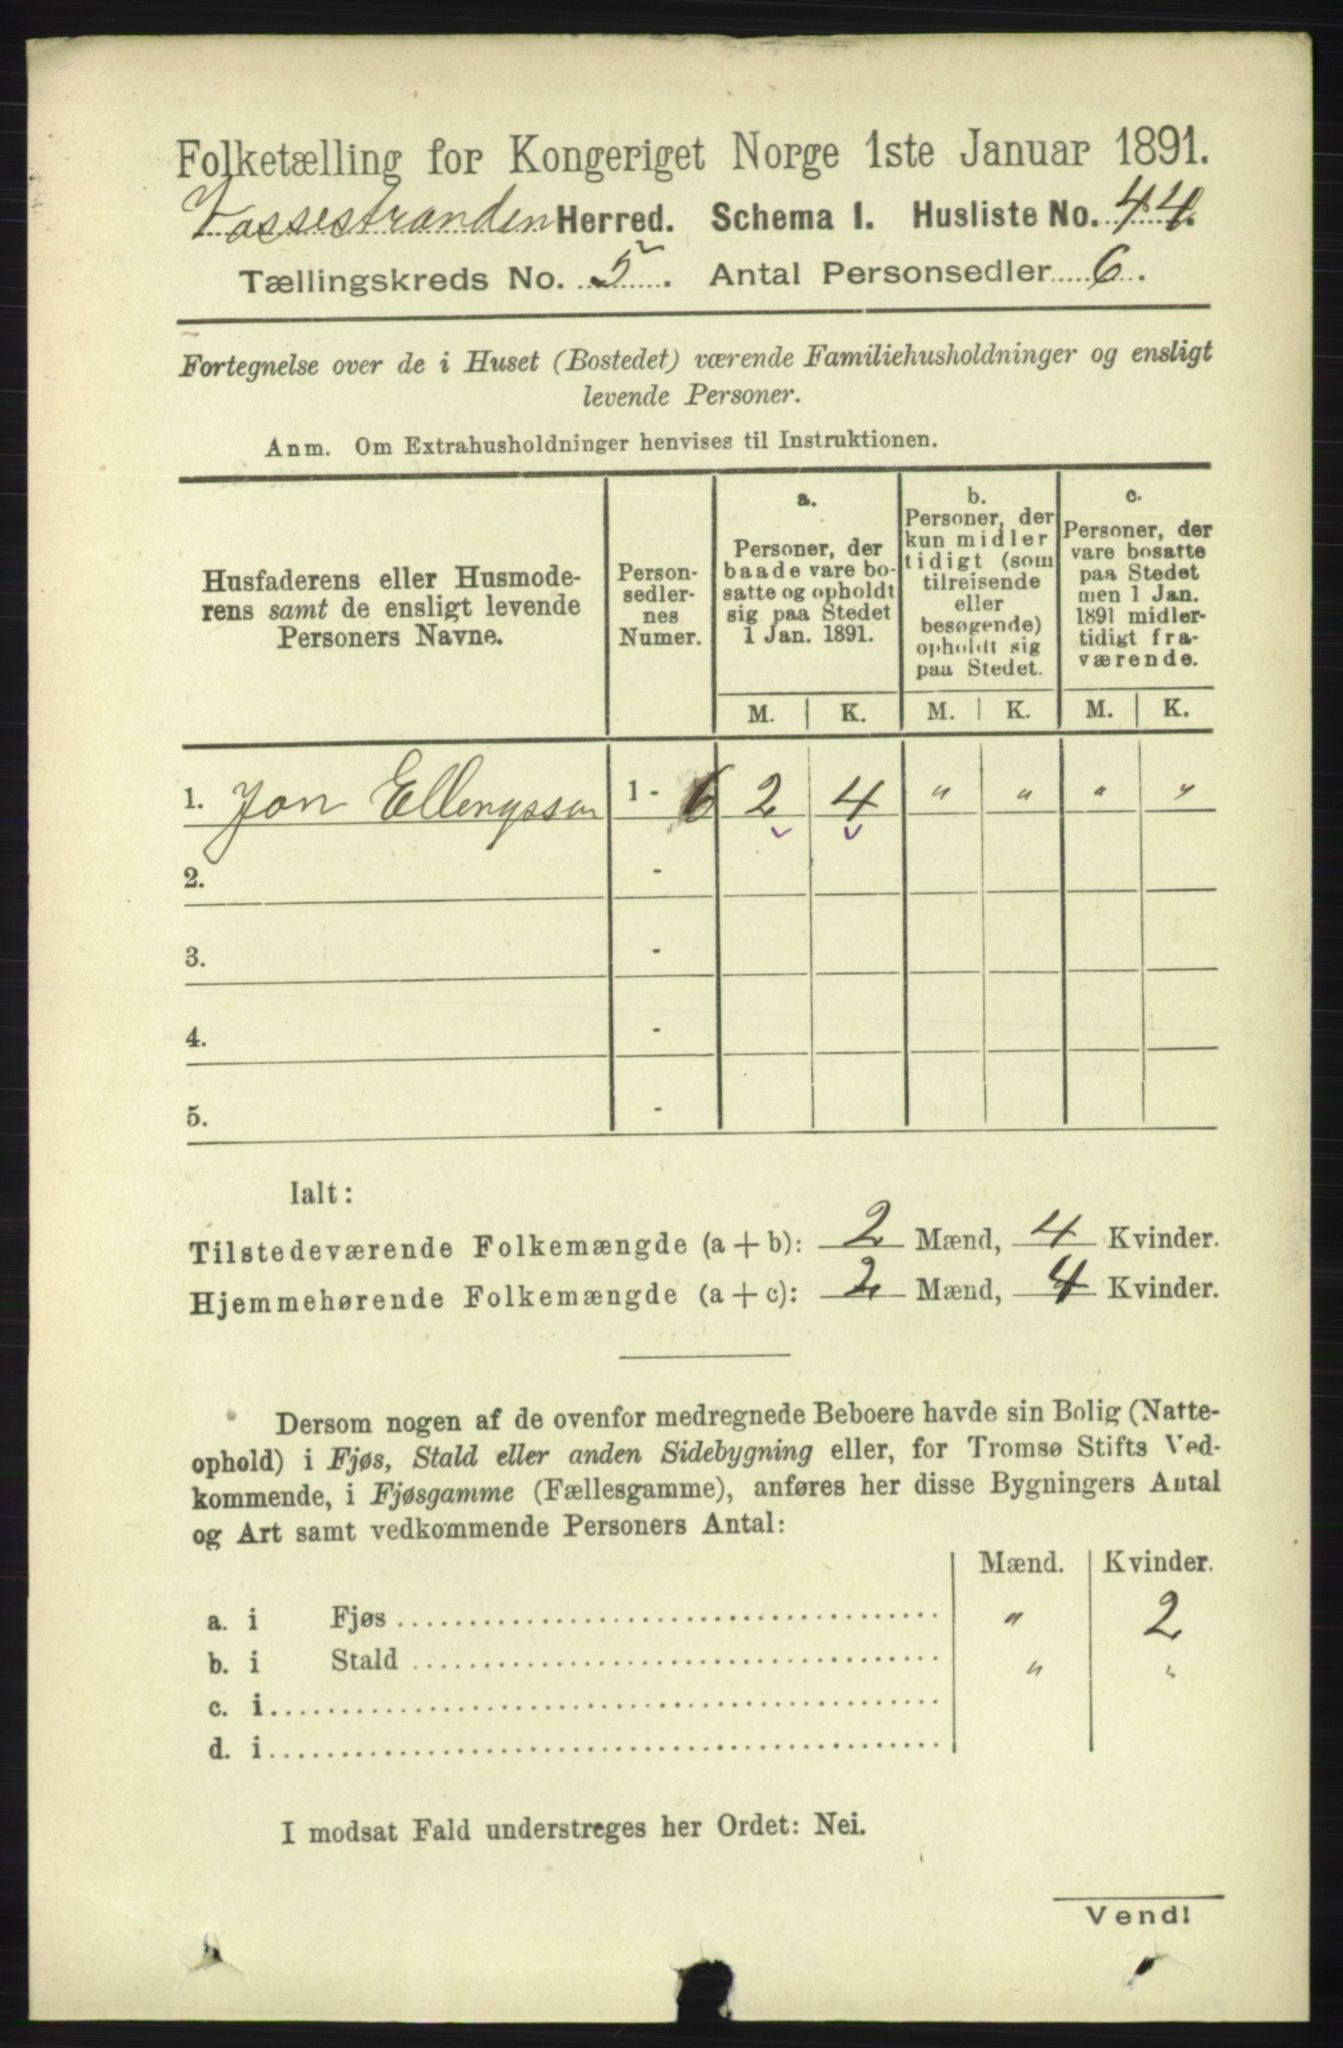 Folketælling for Kongeriget Norge 1ste Januar 1891.
Vossestranden Herred. Schema I. Husliste No. 44.
Tællingskreds No. 5. Antal Personsedler 6.
Fortegnelse over de i Huset (Bostedet) værende Familiehusholdninger og ensligt
levende Personer.
Anm. Om Extrahusholdninger henvises til Instruktionen.
Husfaderens eller Husmode-
rens samt de ensligt levende
Personers Navne.
Person-
sedler-
nes
Numer.
a.
Personer, der
baade vare bo-
satte og opholdt
sig paa Stedet
1 Jan. 1891.
b.
Personer, der
kun midler
tidigt (som
tilreisende
eller
besøgende)
opholdt sig
paa Stedet.
c.
Personer, der
vare bosatte
paa Stedet
men 1 Jan.
1891 midler-
tidigt fra-
værende.
M. K. M. K. M. K.
1. Jon Ellengssen 1 - 6 2 4 " " " "
2. -
3. -
4. -
5. -
Ialt:
Tilstedeværende Folkemængde (a + b): 2 Mænd, 4 Kvinder.
Hjemmehørende Folkemængde (a + c): 2 Mænd, 4 Kvinder.
Dersom nogen af de ovenfor medregnede Beboere havde sin Bolig (Natte-
ophold) i Fjøs, Stald eller anden Sidebygning eller, for Tromsø Stifts Ved-
kommende, i Fjøsgamme (Fællesgamme), anføres her disse Bygningers Antal
og Art samt vedkommende Personers Antal:
Mænd. Kvinder.
a. i Fjøs " 2
b. i Stald " "
c. i
d. i
I modsat Fald understreges her Ordet: Nei.
Vend!